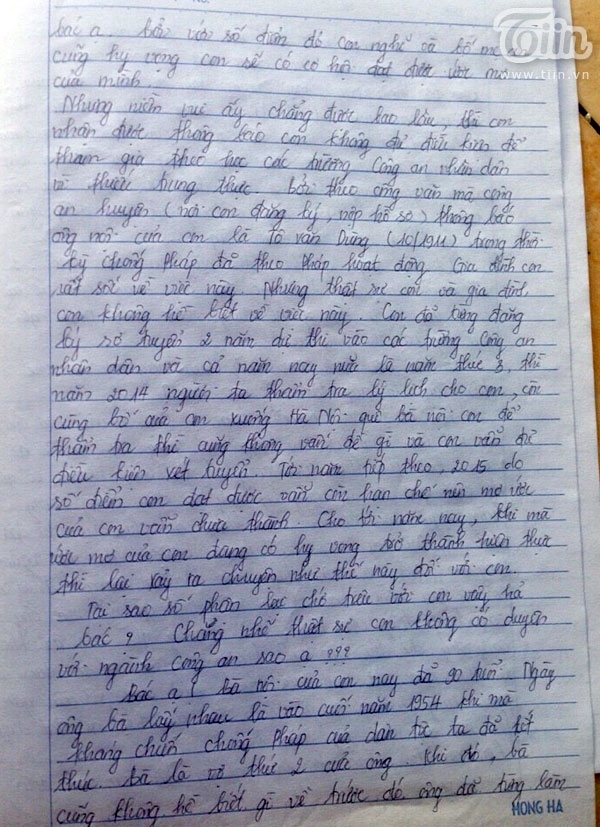 Tiin
www.tiin.vn
bác ạ. bởi với số điểm đó con nghĩ và bố mẹ
cũng hy vọng con sẽ có cơ hội đạt được ước mơ
của mình.
Nhưng niềm vui ấy chẳng được bao lâu, thì con
nhận được thông báo con không đủ điều kiện để
tham gia theo học các trường Công an nhân dân
vì thiếu trung thực. Bởi theo công văn mà công
an huyện (nơi con đăng ký, nộp hồ sơ) thông báo
ông nội của con là Tô Văn Dũng (10/1911) trong thời
kỳ chống Pháp đã theo Pháp hoạt động. Gia đình con
rất sốc về việc này. Nhưng thật sự con và gia đình
con không hề biết về việc này. Con đã từng đăng
ký sơ tuyển 2 năm dự thi vào các trường Công an
nhân dân và cả năm nay nữa là năm thứ 3, thì
năm 2014 người ta thẩm tra lý lịch cho con, còn
cùng bố của con xuống Hà Nội quê bà nội con để
thẩm tra thì cũng không vấn đề gì và con vẫn đủ
điều kiện xét tuyển. Tới năm tiếp theo, 2015 do
số điểm con đạt được vẫn còn hạn chế nên mơ ước
của con vẫn chưa thành. Cho tới năm nay, khi mà
ước mơ của con đang có hy vọng trở thành hiện thực
thì lại xảy ra chuyện như thế này đối với con.
Tại sao số phận lại trêu với con vậy hả
bác? Chẳng nhẽ thật sự con không có duyên
với ngành công an sao ạ ???
Bác ạ! bà nội của con nay đã 90 tuổi. Ngày
ông bà lấy nhau là vào cuối năm 1954 khi mà
kháng chiến chống Pháp của dân tộc ta đã kết
thúc. bà là vợ thứ 2 của ông. Khi đó, bà
cũng không hề biết gì về trước đó ông đã từng làm
HONG HA